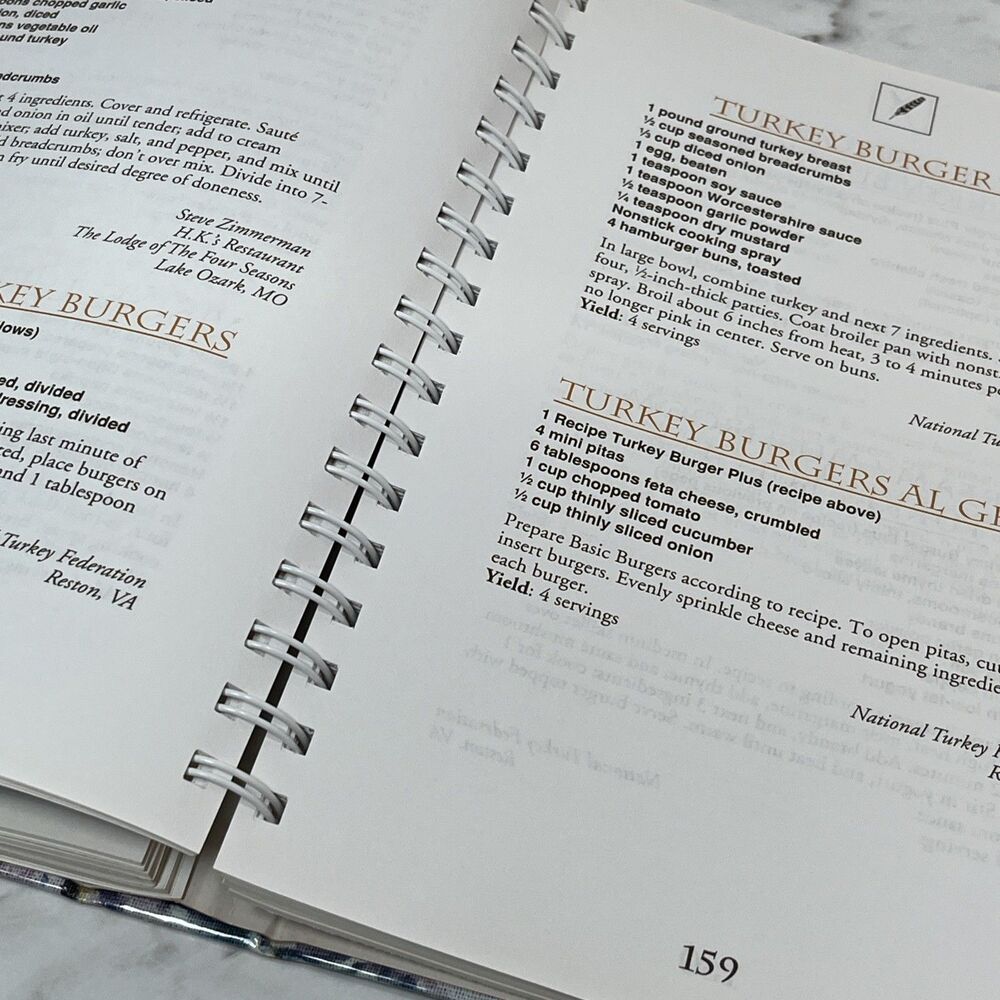 chopped garlic
diced
vegetable oil
turkey
4 ingredients. Cover and refrigerate. Sauté
onion in oil until tender; add to cream
add turkey, salt, and pepper, and mix until
breadcrumbs; don't over mix. Divide into 7-
fry until desired degree of doneness.
Steve Zimmerman
H.K.'s Restaurant
The Lodge of The Four Seasons
Lake Ozark, MO
BURGERS
divided
divided
last minute of
place burgers on
and 1 tablespoon
Turkey Federation
Reston, VA
TURKEY BURGER
1 pound ground turkey breast
½ cup seasoned breadcrumbs
⅓ cup diced onion
1 egg, beaten
1 teaspoon soy sauce
1 teaspoon Worcestershire sauce
½ teaspoon garlic powder
¼ teaspoon dry mustard
Nonstick cooking spray
4 hamburger buns, toasted
In large bowl, combine turkey and next 7 ingredients.
four, ½-inch-thick parties. Coat broiler pan with
spray. Broil about 6 inches from heat, 3 to 4 minutes
no longer pink in center. Serve on buns.
Yield: 4 servings
National
TURKEY BURGERS AL
1 Recipe Turkey Burger Plus (recipe above)
4 mini pitas
6 tablespoons feta cheese, crumbled
1 cup chopped tomato
½ cup thinly sliced cucumber
½ cup thinly sliced onion
Prepare Basic Burgers according to recipe. To open pitas,
insert burgers. Evenly sprinkle cheese and remaining
each burger.
Yield: 4 servings
National Turkey
159